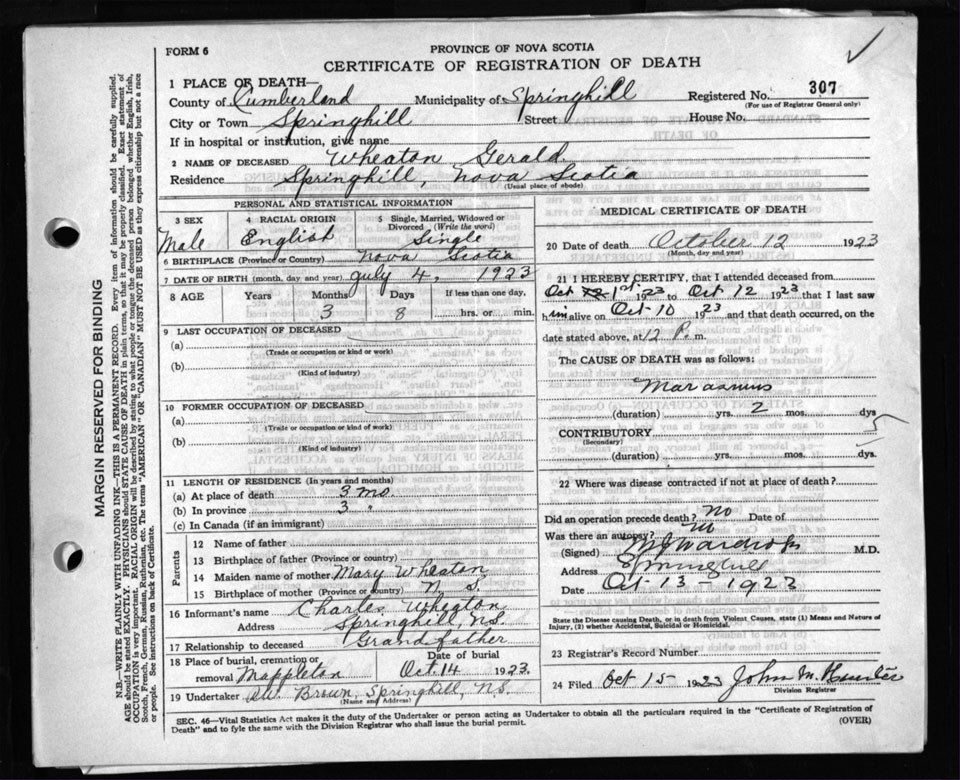 FORM 6
PROVINCE OF NOVA SCOTIA
CERTIFICATE OF REGISTRATION OF DEATH
1 PLACE OF DEATH—
County of Cumberland Municipality of Springhill Registered No. 307
(For use of Registrar General only)
City or Town Springhill Street House No.
If in hospital or institution, give name
2 NAME OF DECEASED Wheaton Gerald
Residence Springhill, Nova Scotia
(Usual place of abode)
PERSONAL AND STATISTICAL INFORMATION
3 SEX Male
4 RACIAL ORIGIN English
5 Single, Married, Widowed or Divorced (Write the word) Single
6 BIRTHPLACE (Province or Country) Nova Scotia
7 DATE OF BIRTH (month, day, and year) July 4, 1923
8 AGE Years Months Days If less than one day,
3 8 hrs. or min.
9 LAST OCCUPATION OF DECEASED
(a)
(Trade or occupation or kind or work)
(b)
(Kind of industry)
10 FORMER OCCUPATION OF DECEASED
(a)
(Trade or occupation or kind of work)
(b)
(Kind of industry)
11 LENGTH OF RESIDENCE (In years and months)
(a) At place of death 3 mo.
(b) In province 3 "
(c) In Canada (if an immigrant)
Parents
12 Name of father
13 Birthplace of father (Province or country)
14 Maiden name of mother Mary Wheaton
15 Birthplace of mother (Province or country) N S.
16 Informant's name Charles Wheaton
Address Springhill, N.S.
17 Relationship to deceased Grandfather
18 Place of burial, cremation or removal Mappleton
Date of burial Oct. 14 1923.
19 Undertaker Brown, Springhill, N.S.
(Name and Address)
MEDICAL CERTIFICATE OF DEATH
20 Date of death October 12 1923
(Month, day and year)
21 I HEREBY CERTIFY, that I attended deceased from
Oct 1st 1923 to Oct 12 1923 that I last saw
him alive on Oct-10 1923 and that death occurred, on the
date stated above, at 12 P. m.
The CAUSE OF DEATH was as follows:
Marasmus
(duration) yrs. 2 mos. dys
CONTRIBUTORY
(Secondary)
(duration) yrs. mos. dys.
22 Where was disease contracted if not at place of death?
Did an operation precede death? No Date of
Was there an autopsy? No
(Signed) Wardrope M.D.
Address Springhill
Date Oct-13-1923
State the Disease causing Death, or in death from Violent Causes, state (1) Means and Nature of Injury, (2) whether Accidental, Suicidal or Homicidal.
23 Registrar's Record Number
24 Filed Oct 15 1923 John M. Hunter
Division Registrar
SEC. 46—Vital Statistics Act makes it the duty of the Undertaker or person acting as Undertaker to obtain all the particulars required in the "Certificate of Registration of
Death" and to fyle the same with the Division Registrar who shall issue the burial permit.
(OVER)
MARGIN RESERVED FOR BINDING
N.B.—WRITE PLAINLY WITH UNFADING INK—THIS IS A PERMANENT RECORD. Every item of information should be carefully supplied.
AGE should be stated EXACTLY. PHYSICIANS should STATE CAUSE OF DEATH in plain terms, so that it may be properly classified. Exact statement of
OCCUPATION is very important. RACIAL ORIGIN will be described by stating to what people or tongue the deceased person belonged whether English, Irish,
Scotch, French, German, Russian, Ruthenian, etc. The terms "AMERICAN" OR "CANADIAN" MUST NOT BE USED as they express citizenship but not a race
or people. See instructions on back of Certificate.